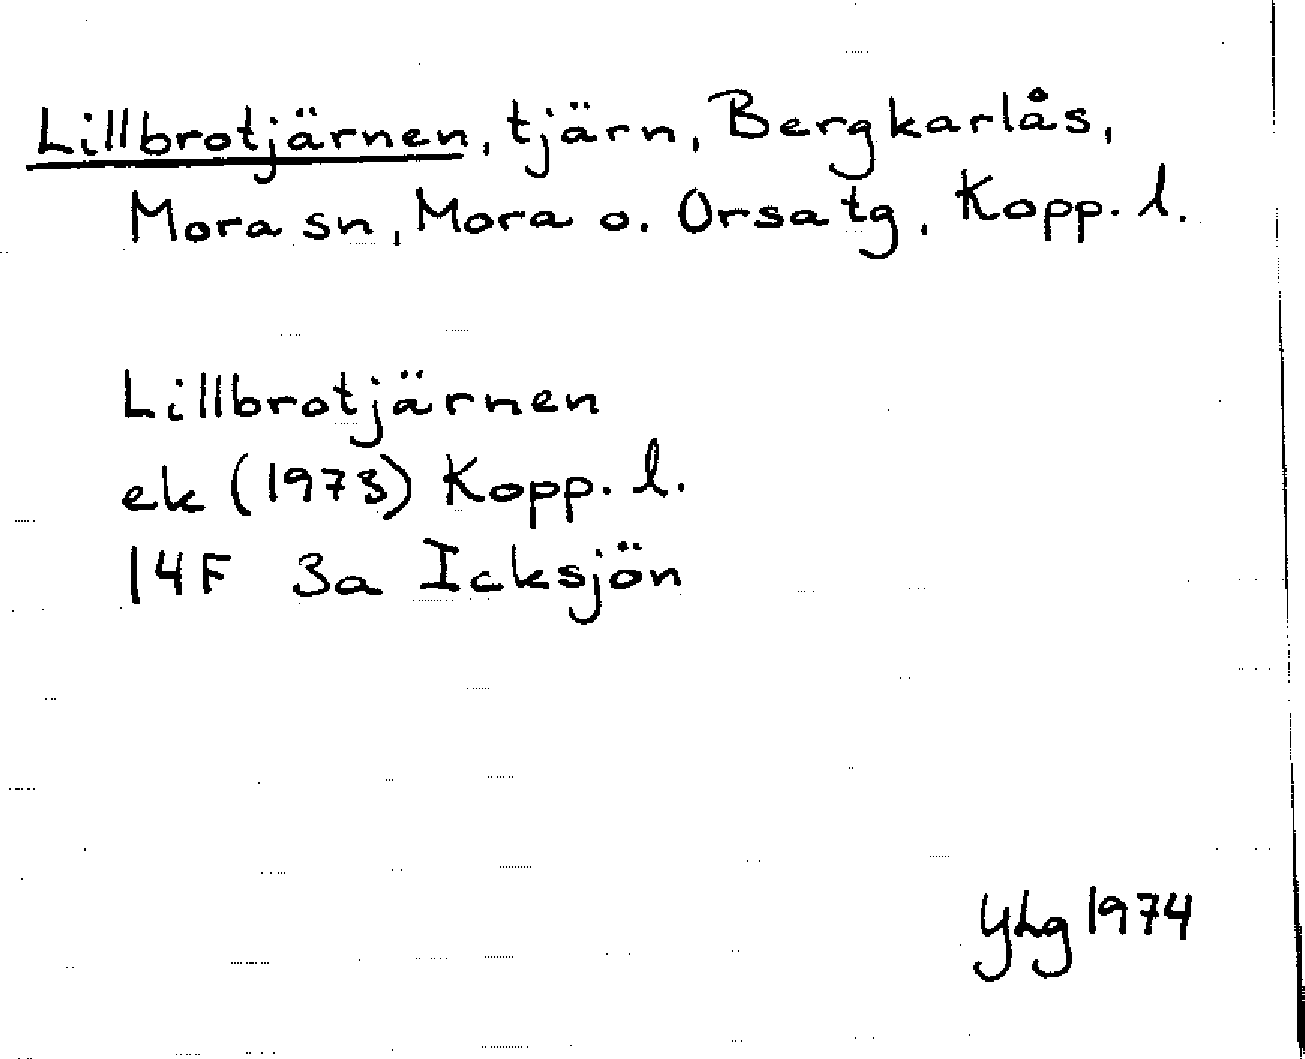 Lillbrotjärnen, tjärn, Bergkarlås,
Mora sn, Mora o. Orsa tg, Kopp. l.
Lillbrotjärnen
ek (1973) Kopp. l.
14F 3a Icksjön
YLg 1974